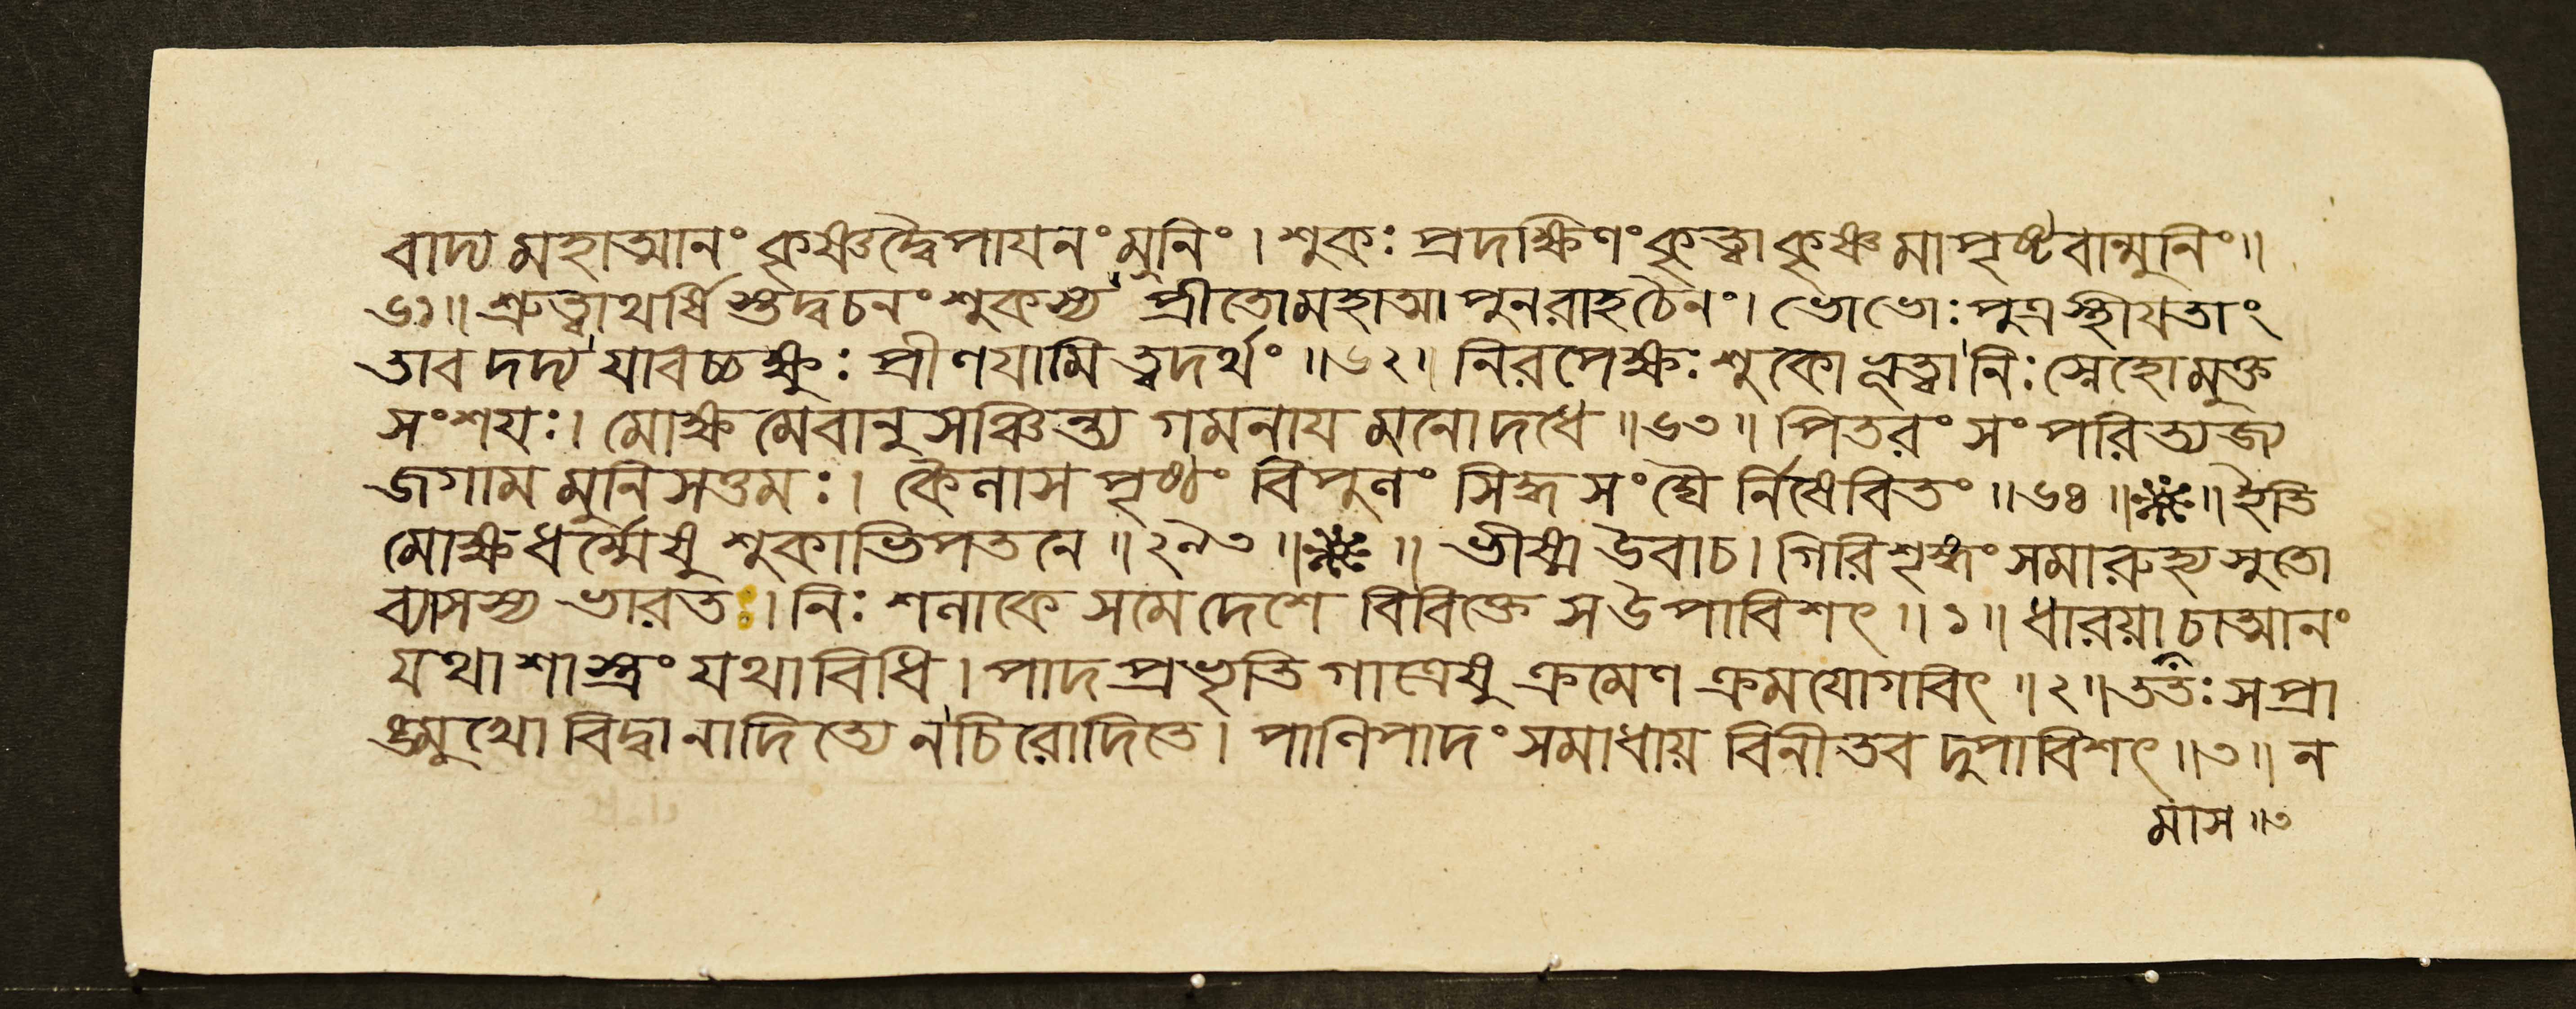 বাদ্য মহাত্মানং কৃষ্ণদ্বৈপাযনং মুনিং । শুকঃ প্রদক্ষিণং কৃত্বা কৃষ্ণমাপৃষ্টবান্মুনিং ॥
৬১॥ শ্রুত্বাথর্ষিস্তদ্বচনং শুকস্য প্রীতো মহাত্মা পুনরাহ চৈনং । ভোভোঃ পুত্র স্থীযতাং
তাবদদ্য যাবচ্চক্ষুঃ প্রীণযামি ত্বদর্থং ॥৬২॥ নিরপেক্ষঃ শুকো ভূত্বা নিঃস্নেহো মুক্ত
সংশযঃ । মোক্ষমেবানুসঞ্চিন্ত্য গমনায মনো দধে ॥৬৩॥ পিতরং সংপরিত্যজ্য
জগাম মুনিসত্তমঃ । কৈলাসপৃষ্ঠং বিপুলং সিদ্ধসংঘৈর্নিষেবিতং ॥৬৪॥ ॥ ইতি
মোক্ষধর্ম্মেষু শুকাভিপতনে ॥২৯৩॥ ॥ ভীষ্ম উবাচ । গিরিশৃঙ্গং সমারুহ্য সুতো
ব্যাসস্য ভারত । নিঃশলাকে সমে দেশে বিবিক্তে স উপাবিশৎ ॥১॥ ধারয়া চাত্মানং
যথাশাস্ত্রং যথাবিধি । পাদপ্রভৃতি গাত্রেষু ক্রমেণ ক্রমযোগবিৎ ॥২॥ ততঃ স প্রা
ঙ্মুখো বিদ্বানাদিত্যে নচিরোদিতে । পাণিপাদং সমাধায় বিনীতবদুপাবিশৎ ॥৩॥ ন
মাস ॥৩